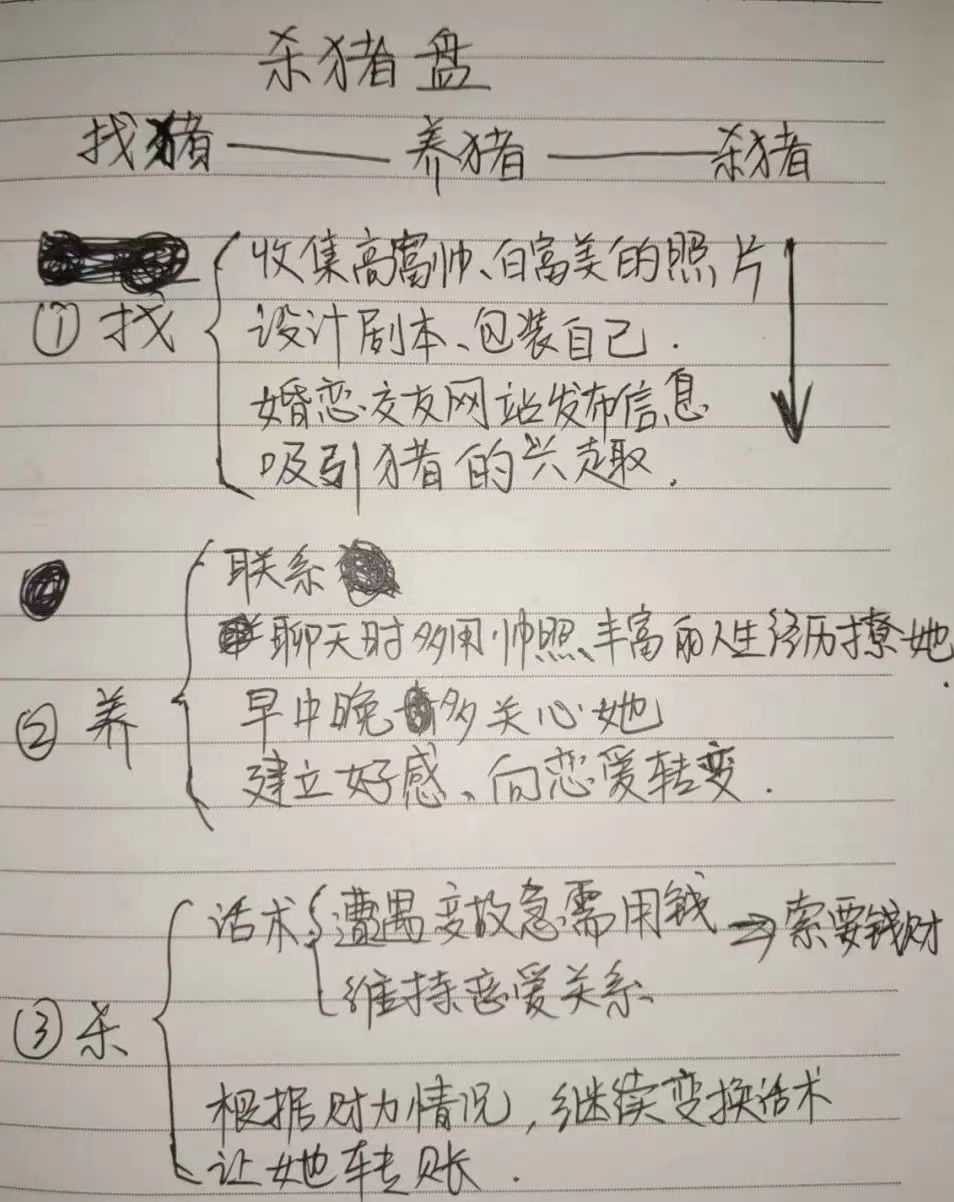 杀猪盘
找猪——养猪——杀猪
收集高富帅、白富美的照片
①找
设计剧本、包装自己.
婚恋交友网站发布信息
吸引猪的兴趣.
联系
聊天时多用帅照、丰富的人生经历撩她.
②养
早中晚多关心她
建立好感、向恋爱转变.
话术 遭遇变故急需用钱→索要钱财
维持恋爱关系、
③杀
根据财力情况,继续变换话术
让她转账.